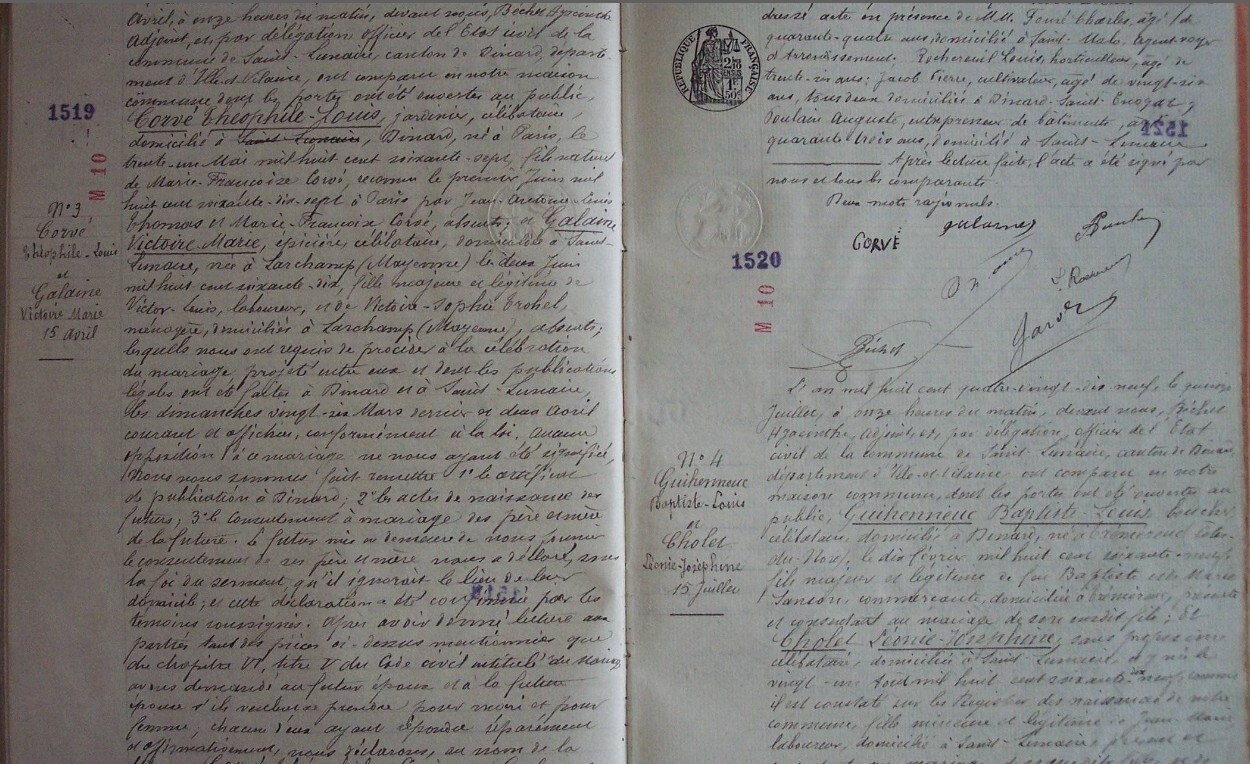 1519
M 10
N° 3
Corvé
Théophile-Louis
et
Galaine
Victoire Marie
15 avril
Avril, à onze heures du matin, devant nous, Béchet Hyacinthe
Adjoint, et, par délégation officier de l'Etat civil de la
commune de Saint-Lunaire, canton de Dinard, départe-
ment d'Ille-et-Vilaine, ont comparu en notre maison
commune dont les portes ont été ouvertes au public,
Corvé Théophile-Louis, jardinier, célibataire,
domicilié à Saint Lunaire, Dinard, né à Paris, le
trente-un Mai mil huit cent soixante-sept, fils naturel
de Marie-Françoise Corvé, reconnu le premier Juin mil
huit cent soixante-dix-sept à Paris par Jean-Louis
Thomas et Marie-Françoise Corvé, absents; et Galaine
Victoire-Marie, épicière, célibataire, domiciliée à Saint-
Lunaire, née à Larchamp (Mayenne) le deux Juin
mil huit cent soixante-dix, fille majeure et légitime de
Victor-Louis, laboureur, et de Victoire-Sophie
ménagère, domiciliés à Larchamp (Mayenne), absents;
lesquels nous ont requis de procéder à la célébration
du mariage projeté entre eux et dont les publications
légales ont été faites à Dinard et à Saint-Lunaire,
les dimanches vingt-six Mars dernier et deux Avril
courant et affichées, conformément à la loi. Aucune
opposition à ce mariage ne nous ayant été signifiée,
Nous nous sommes fait remettre 1° le certificat
de publication à Dinard; 2° les actes de naissance des
futurs; 3° le consentement à mariage des père et mère
de la future. Le futur mis en demeure de nous fournir
le consentement de ses père et mère nous a déclaré, sous
la foi du serment, qu'il ignorait le lieu de leur
domicile; et cette déclaration a été confirmée par les
témoins soussignés. Après avoir donné lecture aux
parties tant des pièces ci-dessus mentionnées que
du chapitre VI, titre V du Code civil intitulé du Mariage
avons demandé au futur époux et à la future
épouse s'ils veulent se prendre pour mari et pour
femme, chacun d'eux ayant répondu séparément
et affirmativement, nous déclarons, au nom de la
dressé acte en présence de MM. Fouré Charles, âgé de
quarante-quatre ans, domicilié à Saint-Malo, agent-voyer
d'Arrondissement; Rochereuil Louis, horticulteur, âgé de
trente-six ans; Jacob Pierre, cultivateur, âgé de vingt-six
ans, tous deux domiciliés à Dinard-Saint-Enogat;
Poulain Auguste, entrepreneur de bâtiments, âgé
quarante trois ans, domicilié à Saint-Lunaire
Après lecture faite, l'acte a été signé par
nous et tous les comparants.
Deux mots rayés nuls.
RÉPUBLIQUE FRANÇAISE
1521
1520
M 10
CORVÉ
galaine
L. Rochereuil
Jacob
Béchet
N° 4
Guihenneuc
Baptiste-Louis
et
Cholet
Léonie-Joséphine
15 Juillet
L'an mil huit cent quatre-vingt-dix neuf, le quinze
Juillet, à onze heures du matin, devant nous, Béchet
Hyacinthe, Adjoint et, par délégation, officier de l'Etat
civil de la commune de Saint-Lunaire, canton de Dinard,
département d'Ille-et-Vilaine ont comparu en notre
maison commune, dont les portes ont été ouvertes au
public, Guihenneuc Baptiste-Louis, boucher
célibataire, domicilié à Dinard, né à Côtes-
du-Nord, le dix février mil huit cent soixante-neuf,
fils majeur et légitime de feu Baptiste et de Marie
commerçante, domiciliée à présente
et consentant au mariage de son susdit fils; Et
Cholet Léonie-Joséphine, sans profession
célibataire, domiciliée à Saint-Lunaire, et y née le
vingt-un Août mil huit cent soixante-
il est constaté sur les Registres des naissances de notre
commune, fille mineure et légitime de Jean-Marie
laboureur, domicilié à Saint-Lunaire présent et